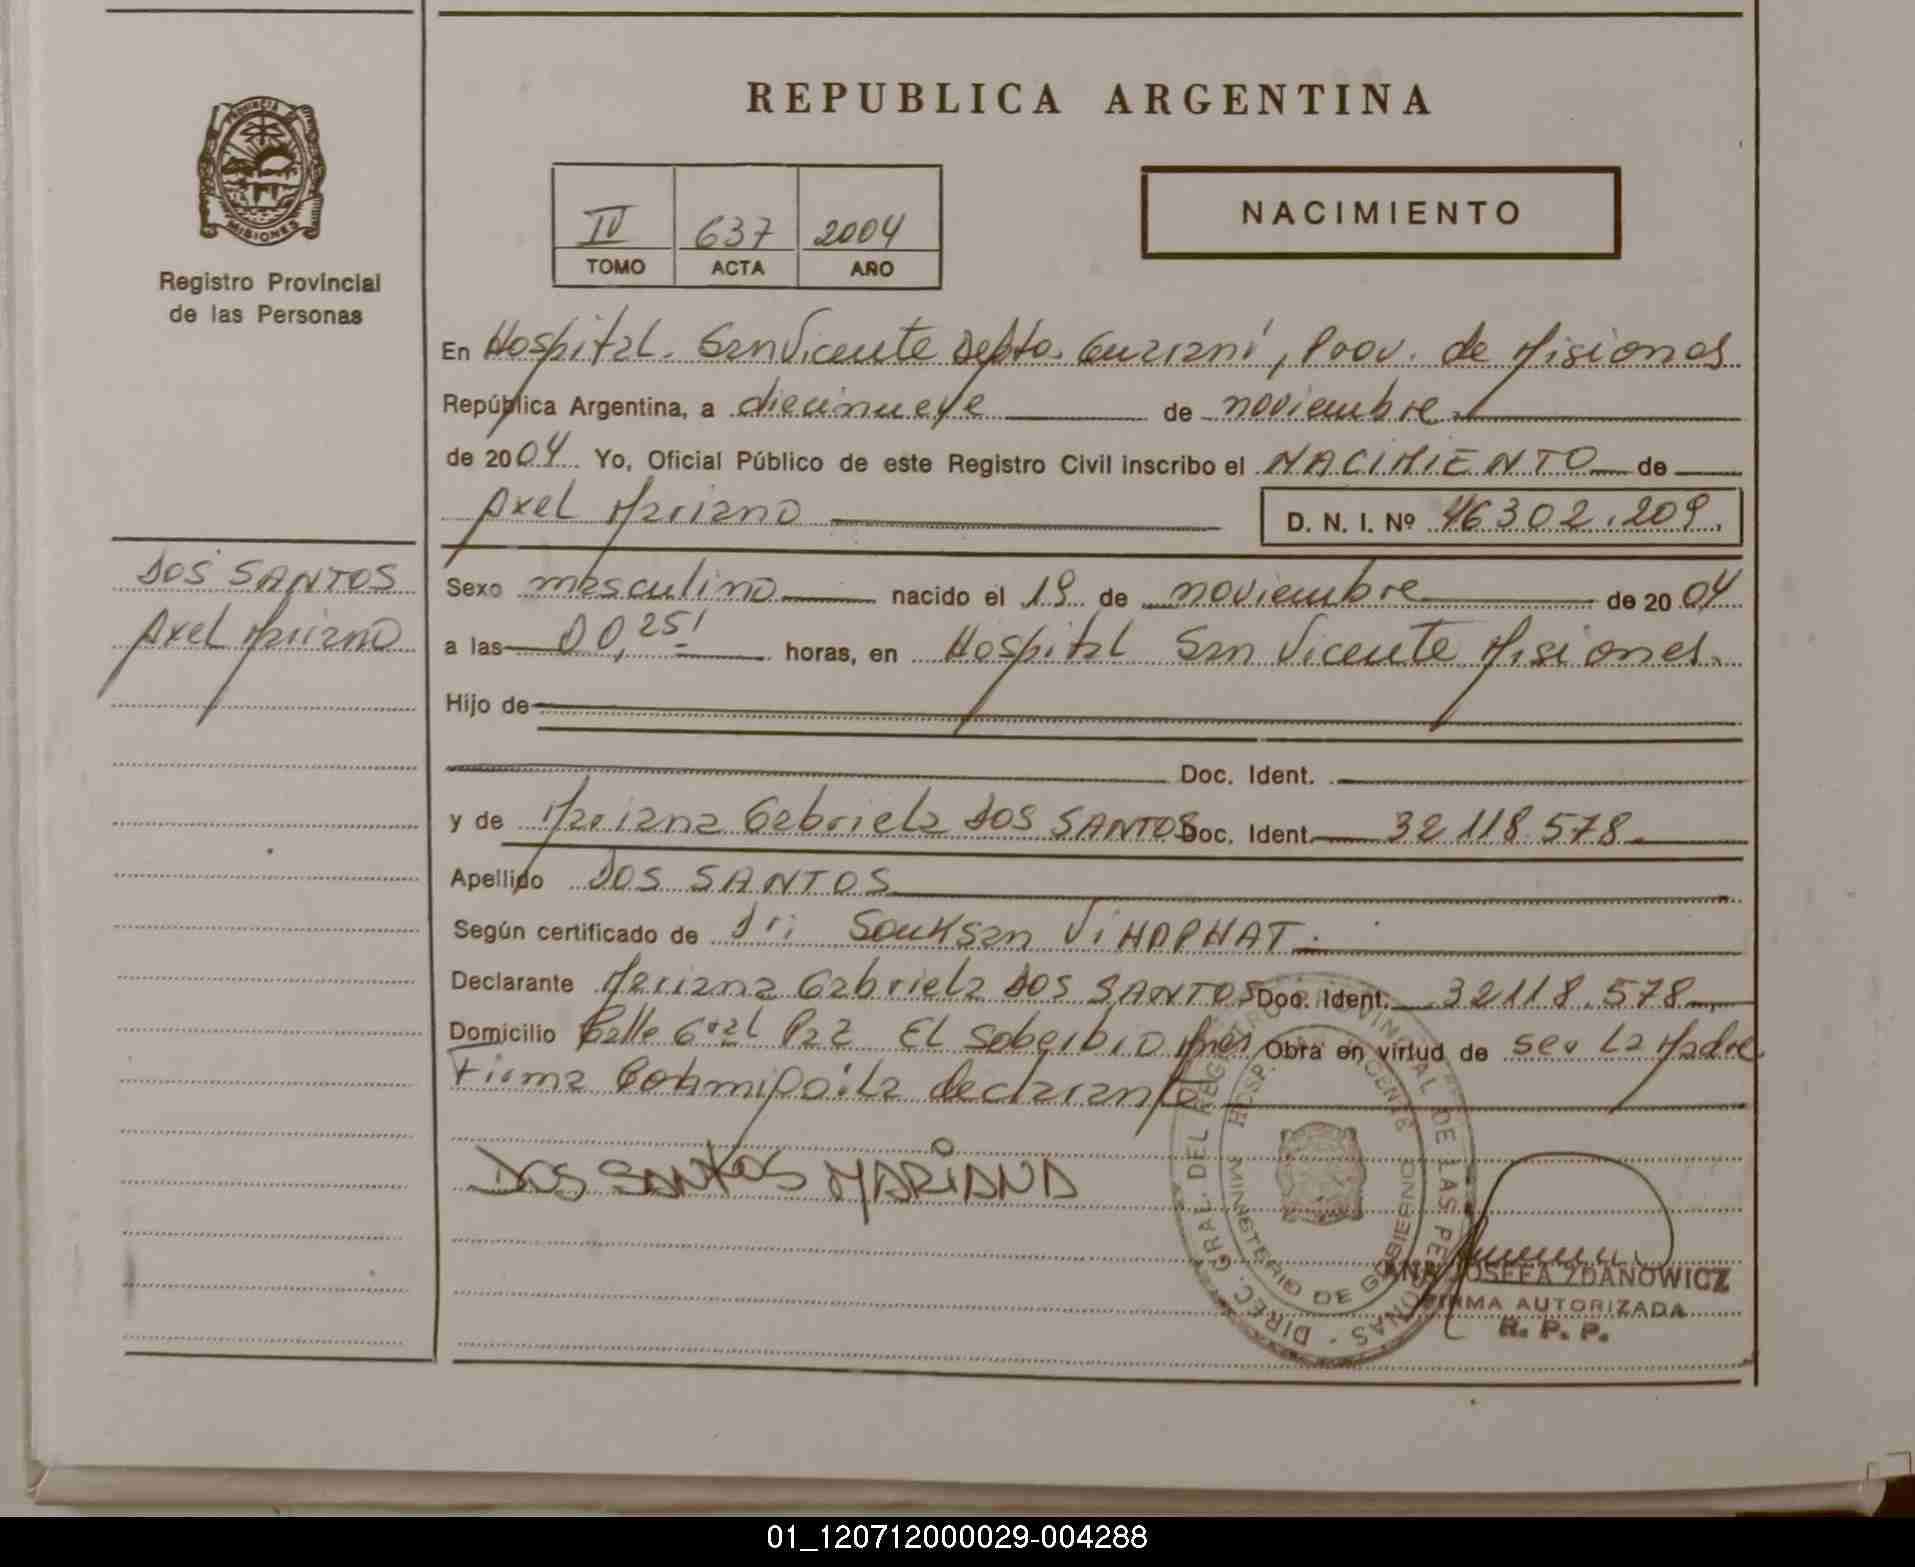 REPUBLICA ARGENTINA
PROVINCIA
MISIONES
Registro Provincial
de las Personas
IV 637 2004
TOMO ACTA AÑO
NACIMIENTO
En Hospital San Vicente Depto. Guaraní, Prov. de Misiones
República Argentina, a diecinueve de noviembre
de 2004 Yo, Oficial Público de este Registro Civil inscribo el NACIMIENTO de
Axel Mariano D. N. I. Nº 46302.209.
DOS SANTOS
Axel Mariano
Sexo masculino nacido el 19 de noviembre de 2004
a las 00,25' horas, en Hospital San Vicente Misiones.
Hijo de
Doc. Ident.
y de Mariana Gabriela DOS SANTOS Doc. Ident. 32118.578.
Apellido DOS SANTOS
Según certificado de Dr: Souksan
Declarante Mariana Gabriela DOS SANTOS Doc. Ident. 32118.578
Domicilio Calle Gral Paz El Soberbio Mnes Obra en virtud de ser la Madre
Firma Conmigo: la declarante
DOS SANTOS MARIANA
DIREC. GRAL. DEL REGISTRO PROVINCIAL DE LAS PERSONAS
MINISTERIO DE GOBIERNO
ANA JOSEFA ZDANOWICZ
FIRMA AUTORIZADA
R. P. P.
01_120712000029-004288